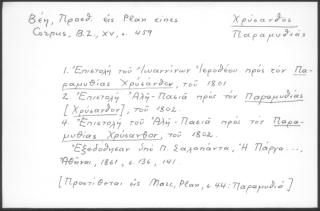 Βέη, Προσθ. εἰς Plan eines
Corpus, B.Z., XV, σ. 459
Χρύσανθος
Παραμυθίας
1. Ἐπιστολὴ τοῦ Ἰωαννίνων Ἱεροθέου πρὸς τὸν Πα-
ραμυθίας Χρύσανθον, τοῦ 1801
2. Ἐπιστολὴ Ἀλῆ-Πασιᾶ πρὸς τὸν Παραμυθίας
[Χρύσανθον], τοῦ 1802.
4. Ἐπιστολὴ τοῦ Ἀλῆ-Πασιᾶ πρὸς τὸν Παρα-
μυθίας Χρύσανθον, τοῦ 1802.
Ἐξεδόθησαν ὑπὸ Π. Σαλαπάντα, Ἡ Πάργα...,
Ἀθῆναι, 1861, σ. 136, 141
[Προστίθεται εἰς Marc, Plan, σ. 44: Παραμυθιά]